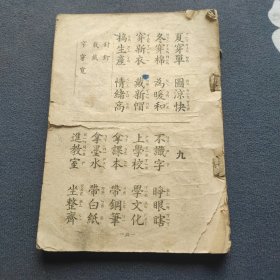 夏穿單 圖涼快
冬穿棉 為暖和
穿新衣 戴新帽
搞生產 情緒高
九
不識字 睜眼瞎
上學校 學文化
拿課本 帶鋼筆
拿墨水 帶白紙
進教室 坐整齊